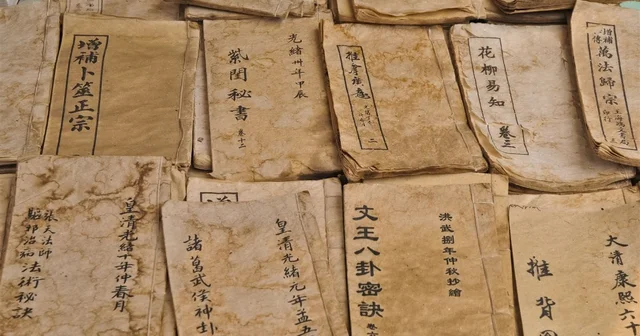 增補卜筮正宗
光緒卅年甲辰
紫閨秘書 卷十二
二
花柳易知 卷三
增補
萬法歸宗
皇清光緒十年仲春月
張天法師
法術秘訣
增
皇清光緒元年孟
諸葛武侯神卦
洪武捌年仲秋抄繪
文王八卦密訣
大清康熙六
推背